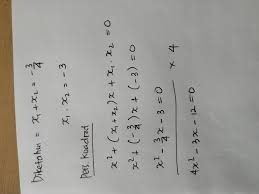 Diketahui = x₁ + x₂ = -3/4
x₁ . x₂ = -3
Pers. Kuadrat
x² + (x₁ + x₂)x + x₁ . x₂ = 0
x² + (-3/4)x + (-3) = 0
x² - 3/4 x - 3 = 0
× 4
4x² - 3x - 12 = 0